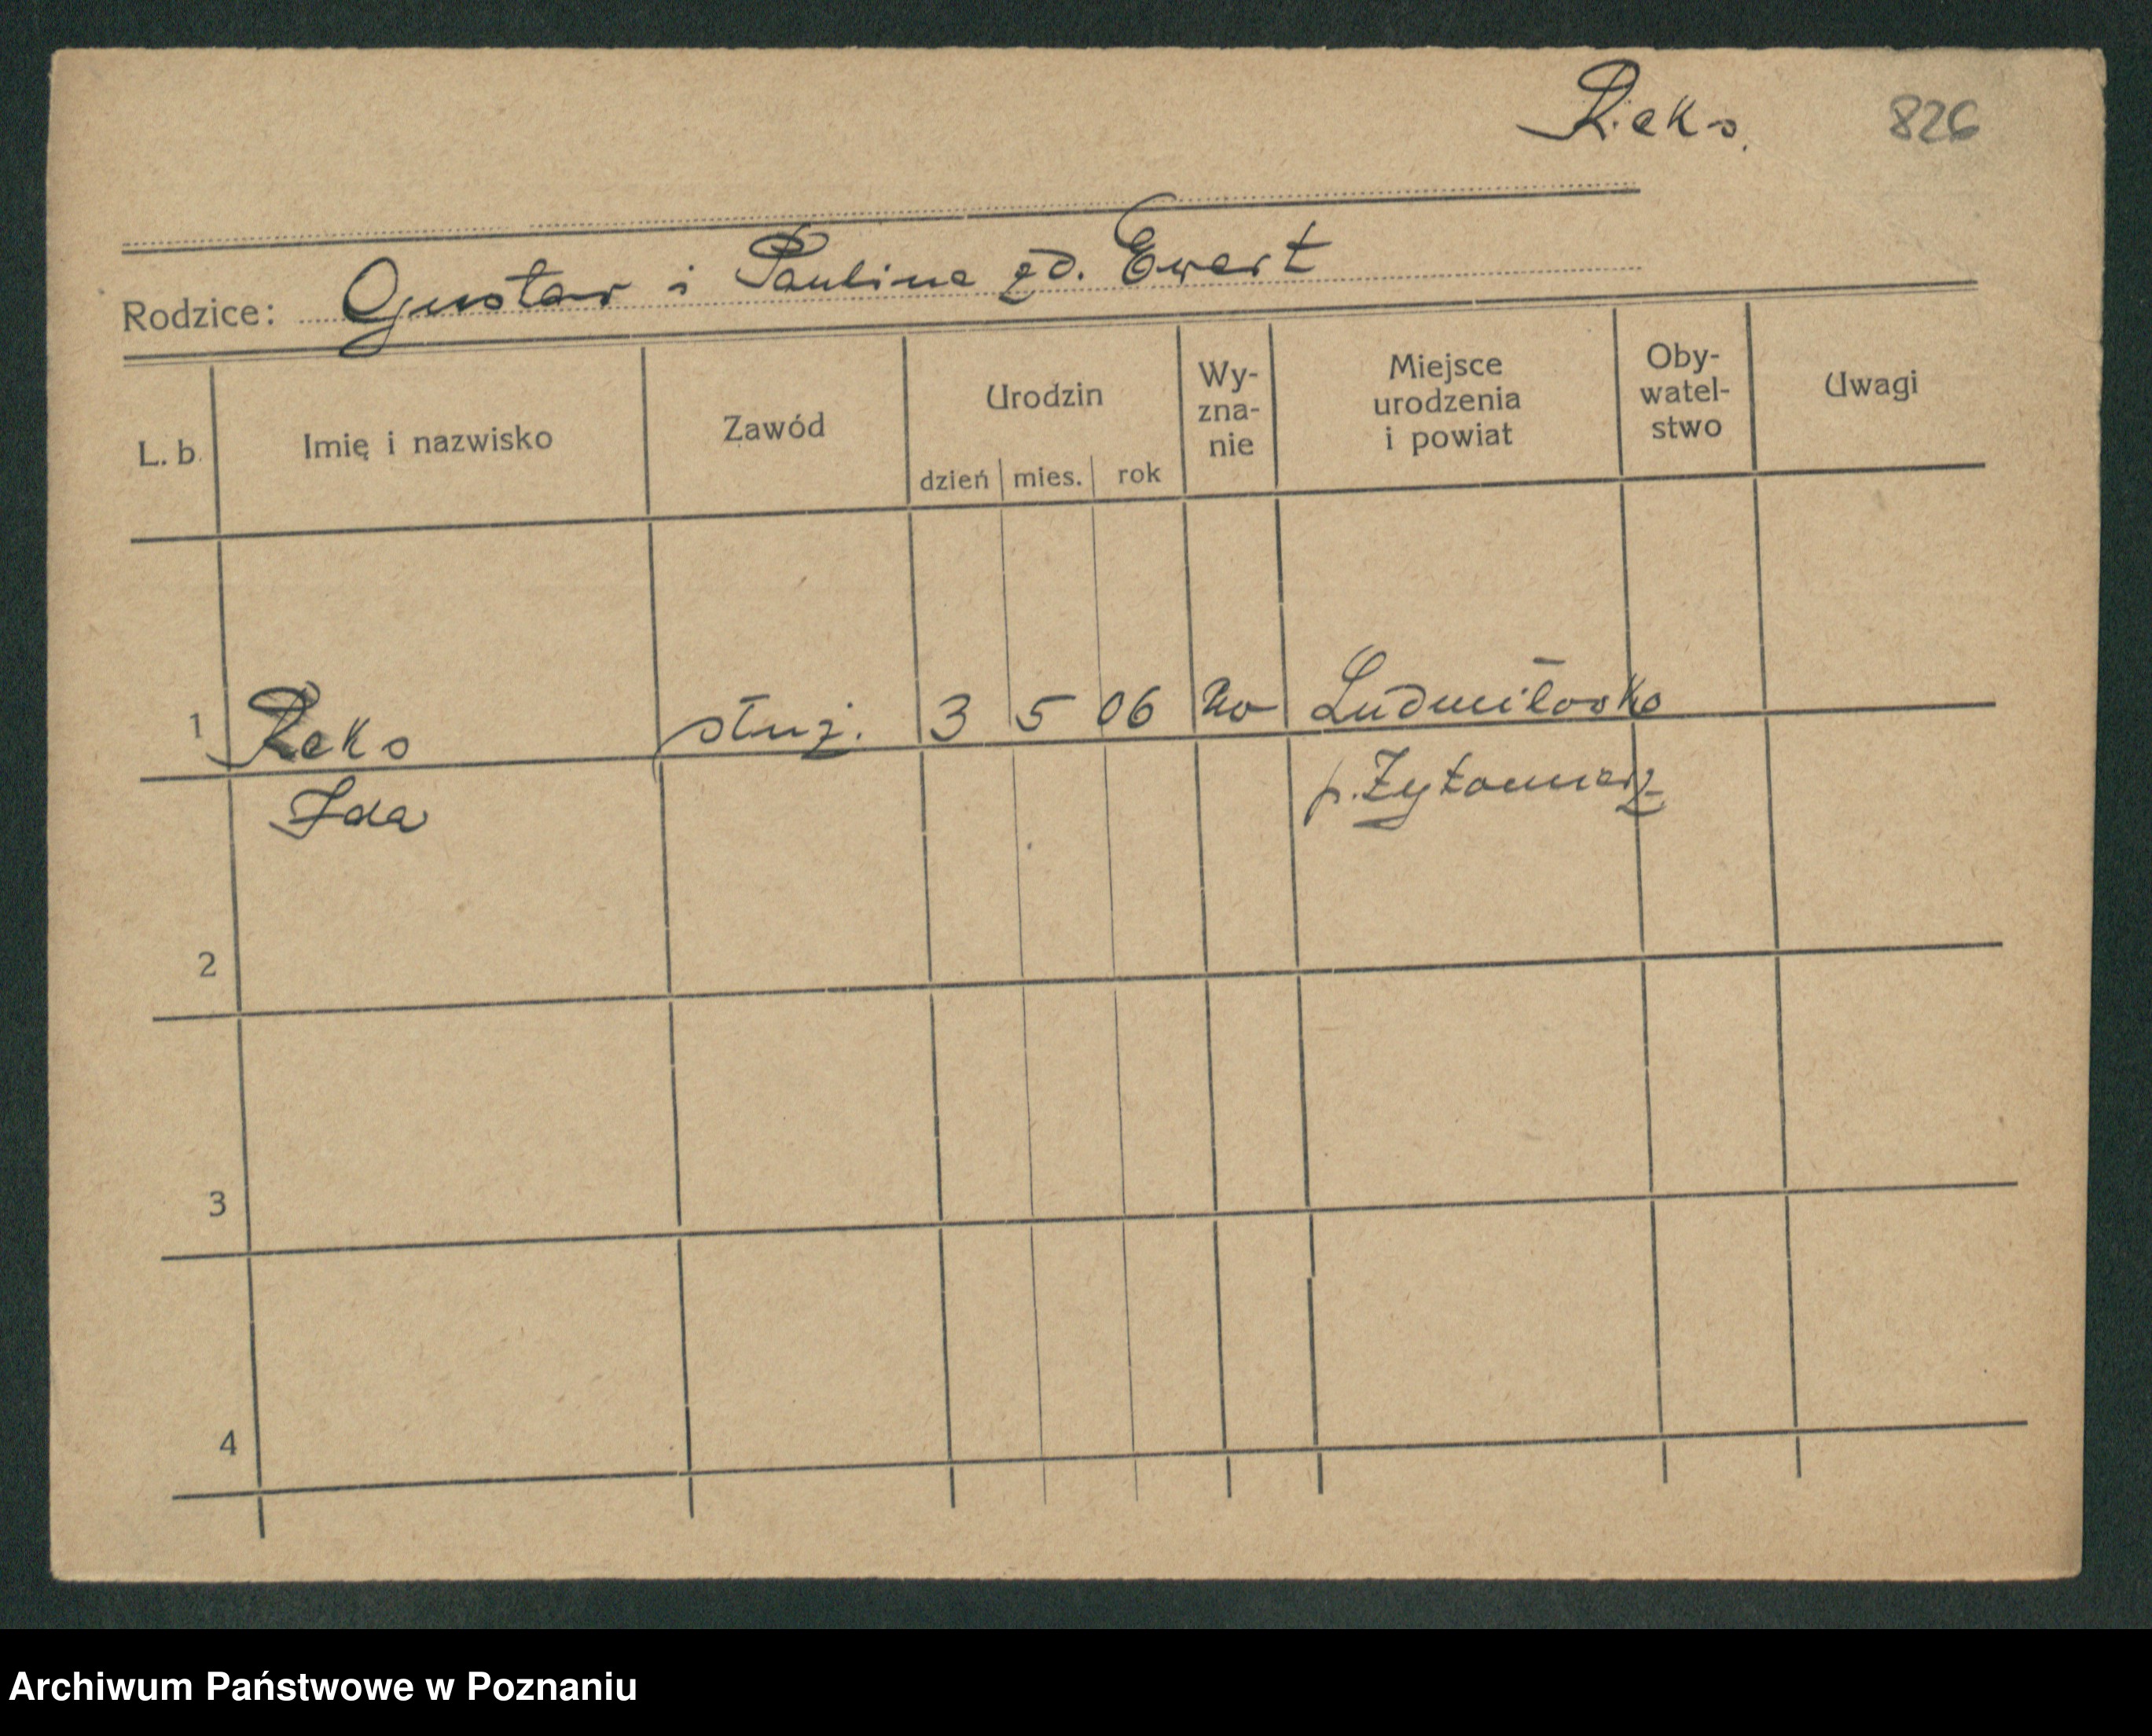 Reks.
826
Rodzice: Gustaw i Paulina zd. Ewert
L. b. Imię i nazwisko Zawód Urodzin dzień mies. rok Wy-zna-nie Miejsce urodzenia i powiat Oby-watel-stwo Uwagi
1 Reks służ. 3 5 06 Ludmiłosko
Ida p. Żytomierz
2
3
4
Archiwum Państwowe w Poznaniu